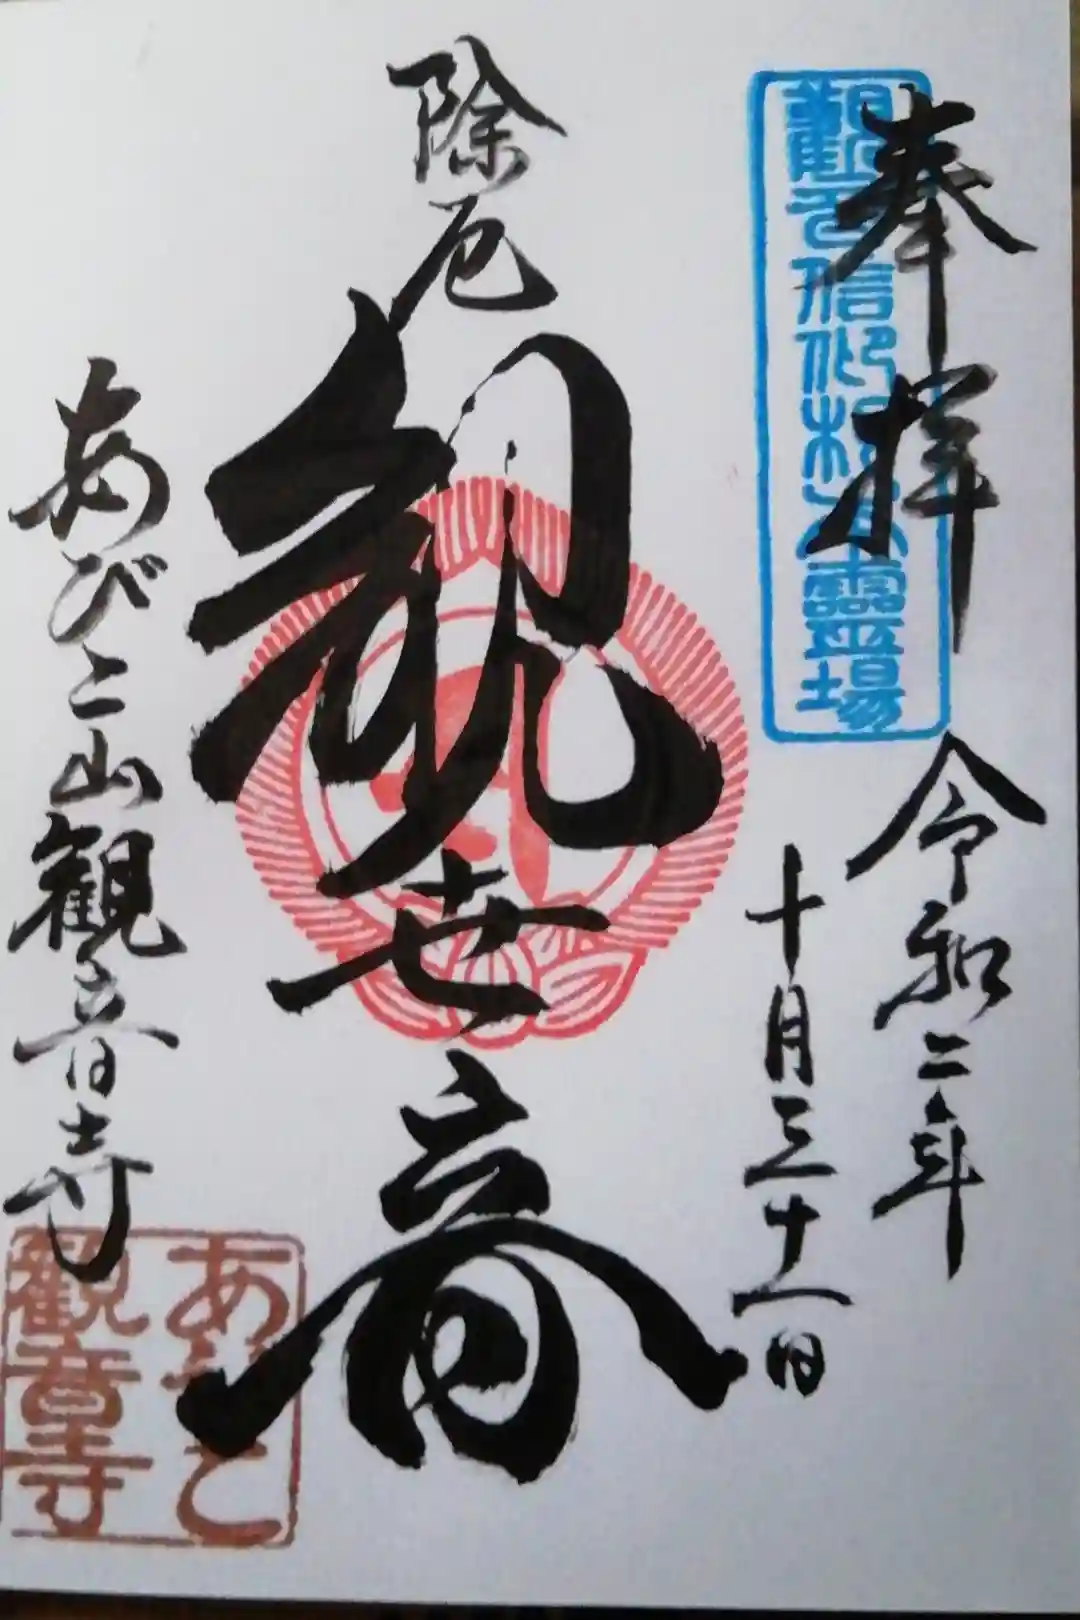 奉拝
観音信仰根本霊場
令和二年
十月三十一日
除厄
観世音
あびこ山観音寺
あびこ
観音寺